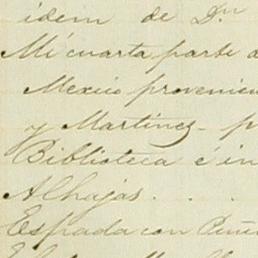 idem de Dn
Mi cuarta parte d
Mexico provenien
y Martinez - p
Biblioteca é in
Alhajas . . .
Espada con Puñ